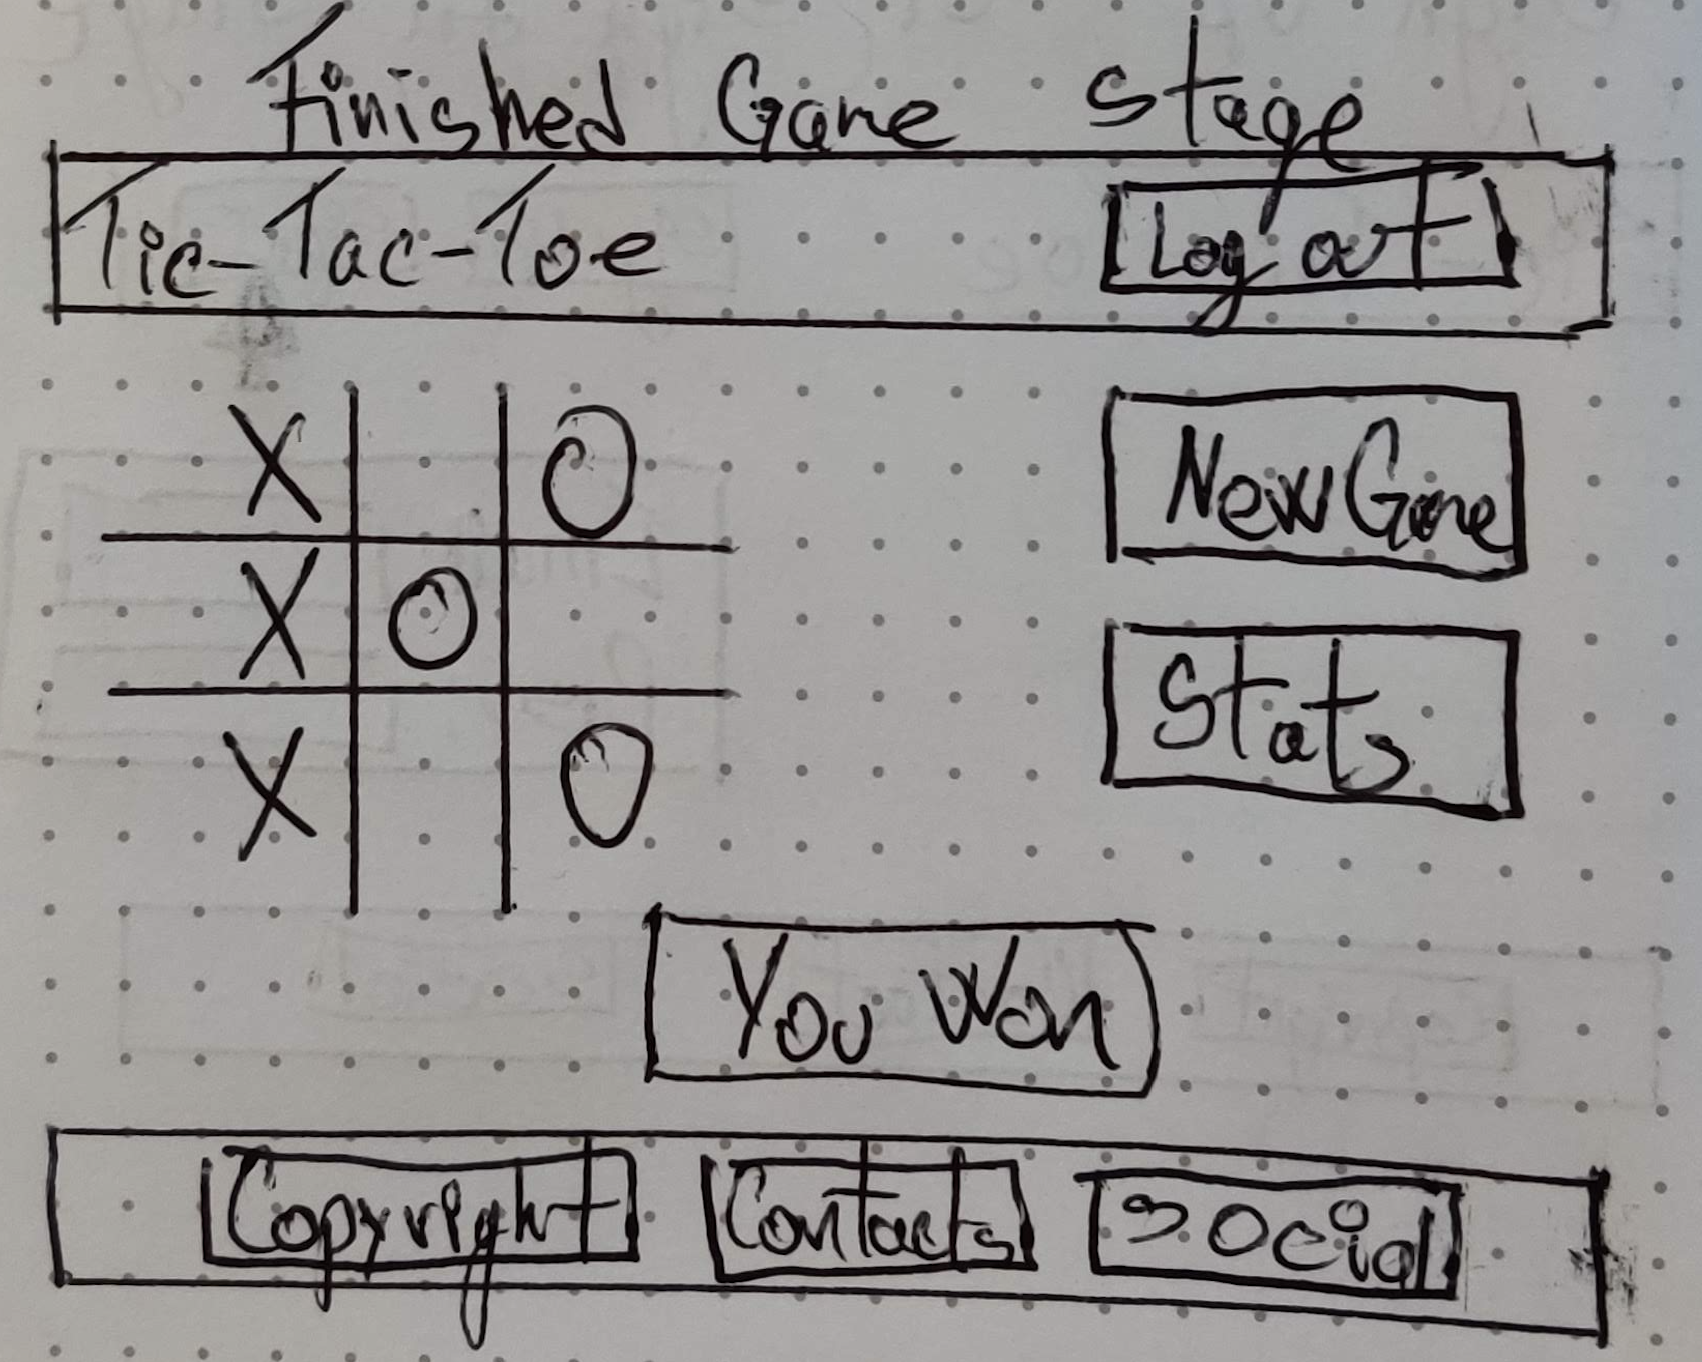 Finished Game Stage
Tic-Tac-Toe Log out
X O
New Game
X O
Stats
X O
You Won
Copyright Contacts Social